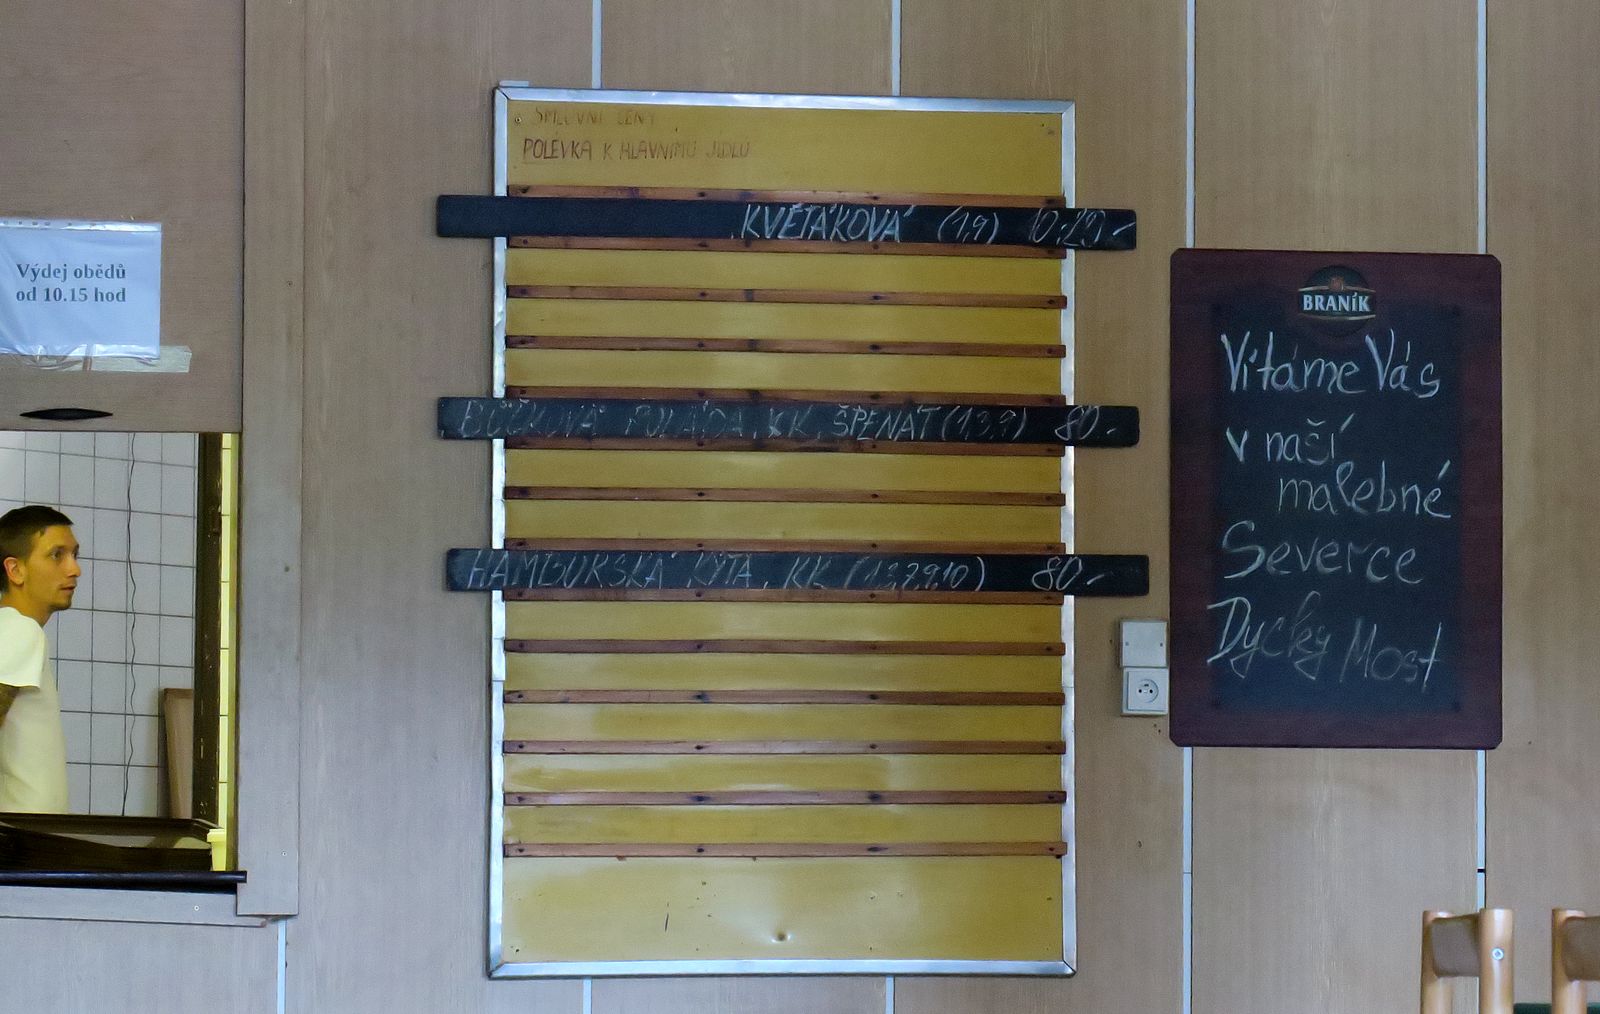 Výdej obědů
od 10.15 hod
SMLUVNÍ CENY
POLÉVKA K HLAVNÍMU JÍDLU
KVĚTÁKOVÁ (1,9) 10,20,-
BŮČKOVÁ ROLÁDA, KK, ŠPENÁT (1,3,9) 80,-
HAMBURSKÁ KÝTA, KK (1,3,7,9,10) 80,-
BRANÍK
Vítáme Vás
v naší
malebné
Severce
Dycky Most